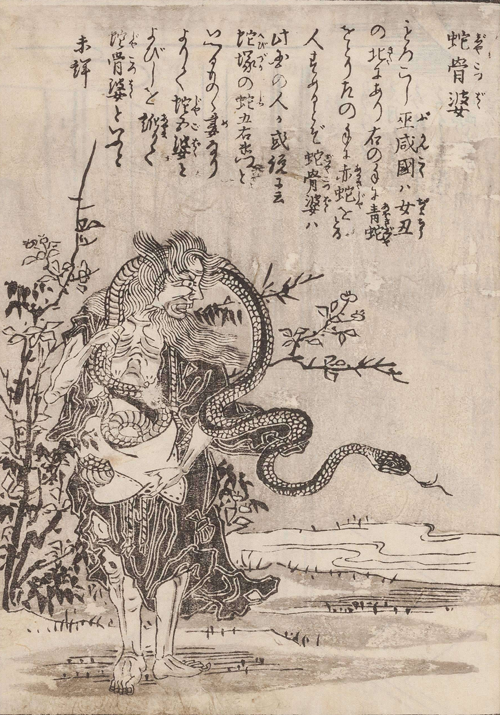 蛇骨婆
もろこし巫咸國ハ女丑
の北にあり右の手に青蛇
をとり左の手に赤蛇をとる
人すめるとぞ蛇骨婆ハ
此国の人か或説に云
蛇塚の蛇五右衛門と
いへるものゝ妻なり
よりて蛇五婆と
よびしを訛りて
蛇骨婆といふと
未詳